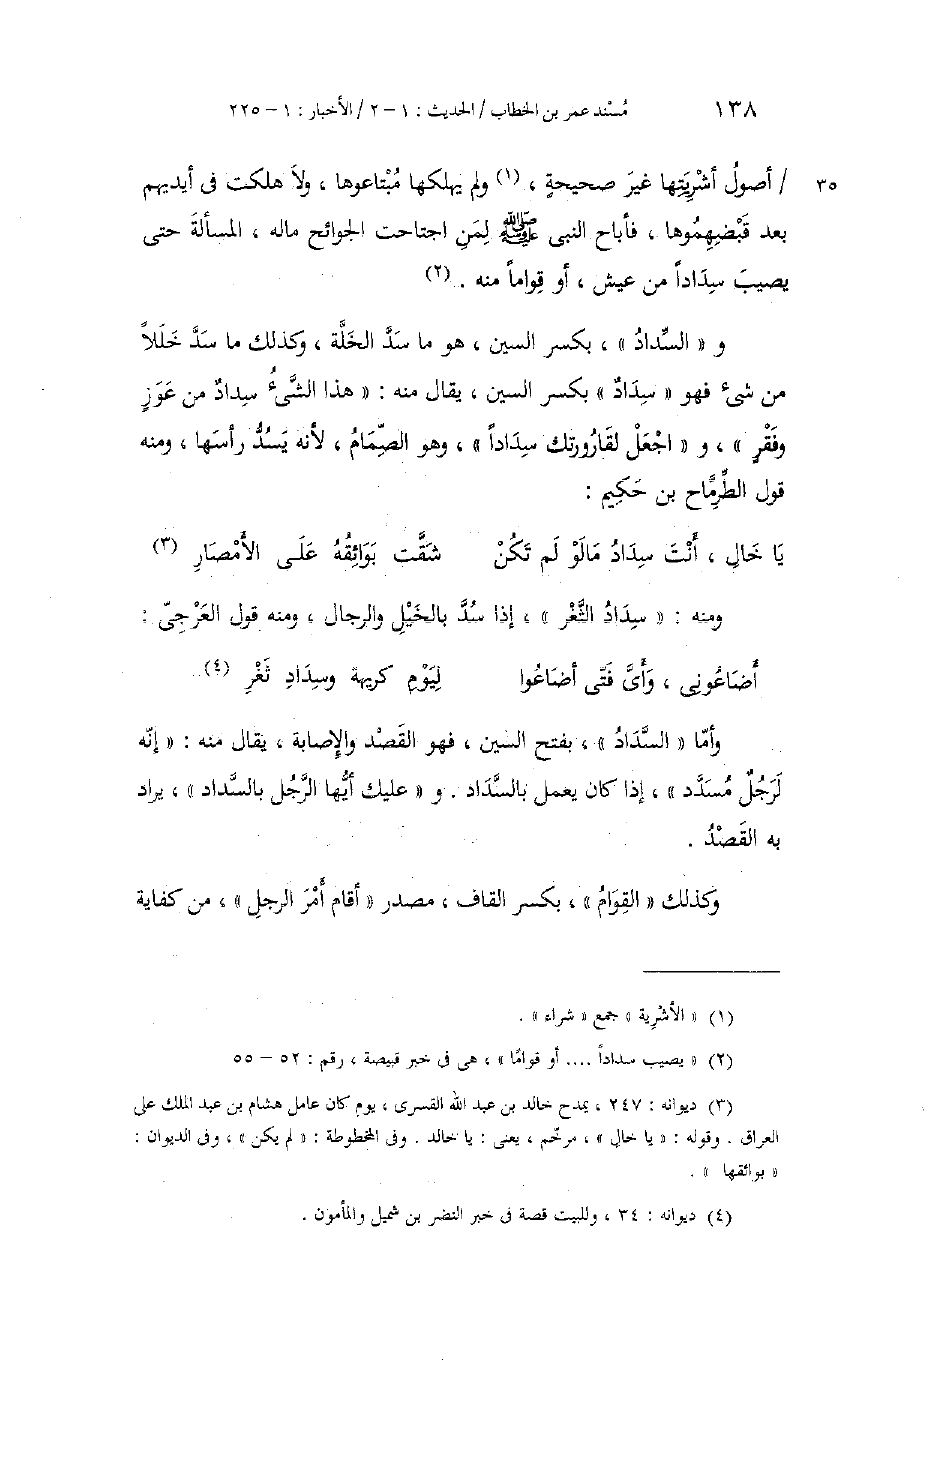 ١٣٨ مُسْند عمر بن الخطاب / الحديث : ١ – ٢ / الأخبار : ١ – ٢٢٥
٣٥ / أصولُ أشْرِيَتِها غيرَ صحيحةٍ ، (١) ولم يهلكها مُبْتاعوها ، ولاَ هلكت فى أيديهم
بعد قَبْضِهِمُوها ، فأباح النبى ﷺ لِمَنِ اجتاحت الجوائح ماله ، المسألةَ حتى
يصيبَ سِدَاداً من عيش ، أو قِواماً منه . (٢)
و « السِّدادُ » ، بكسر السين ، هو ما سَدَّ الخَلَّة ، وكذلك ما سَدَّ خَلَلاً
من شىء فهو « سِدَادٌ » بكسر السين ، يقال منه : « هذا الشَّىءُ سِدادٌ من عَوَزٍ
وفَقْرٍ » ، و « اجْعَلْ لقَارُورتك سِدَاداً » ، وهو الصِّمَامُ ، لأنه يَسُدُّ رأسَها ، ومنه
قول الطِّرِمَّاح بن حَكِيم :
يَا خَالِ ، أَنْتَ سِدَادُ مَالَوْ لَم تَكُنْ شَقَّت بَوَائِقُهُ عَلَـى الأَمْصَارِ (٣)
ومنه : « سِدَادُ الثَّغْر » ، إذا سُدَّ بالخَيْلِ والرجال ، ومنه قول العَرْجِىّ :
أَضَاعُونِى ، وَأَىَّ فَتًى أضَاعُوا لِيَوْمِ كريهة وسِدَادِ ثَغْرِ (٤)
وأمّا « السَّدَادُ » ، بفتح السين ، فهو القَصْد والإصابة ، يقال منه : « إنّه
لَرَجُلٌ مُسَدَّد » ، إذا كان يعمل بالسَّدَاد . و « عليك أيُّها الرَّجُل بالسَّداد » ، يراد
به القَصْدُ .
وكذلك « القِوَامُ » ، بكسر القاف ، مصدر « أقام أَمْرَ الرجلِ » ، من كفاية
(١) « الأشْرِية » جمع « شراء » .
(٢) « يصيب سداداً .... أو قوامًا » ، هى فى خبر قبيصة ، رقم : ٥٢ – ٥٥
(٣) ديوانه : ٢٤٧ ، يمدح خالد بن عبد الله القسرى ، يوم كان عامل هشام بن عبد الملك على
العراق . وقوله : « يا خال » ، مرخّم ، يعنى : يا خالد . وفى المخطوطة : « لم يكن » ، وفى الديوان :
« بوائقها » .
(٤) ديوانه : ٣٤ ، وللبيت قصة فى خبر النضر بن شميل والمأمون .